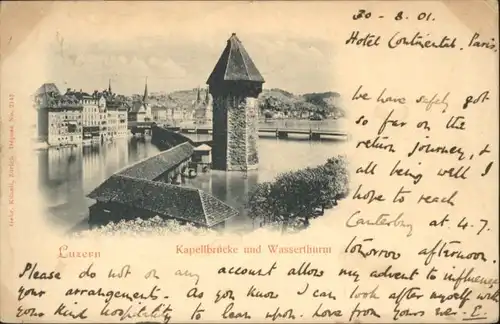 30 - 8. 01.
Hotel Continental, Paris.
We have safely got
so far on the
return journey, &
all being well I
hope to reach
Canterbury at 4.7.
tomorrow afternoon.
Luzern
Kapellbrücke und Wasserthurm
Please do not on any account allow my advent to influence
your arrangements. As you know I can look after myself with
your kind hospitality to lean upon. Love from yours ever - E.
Gebr. Künzli, Zürich, Déposé No.